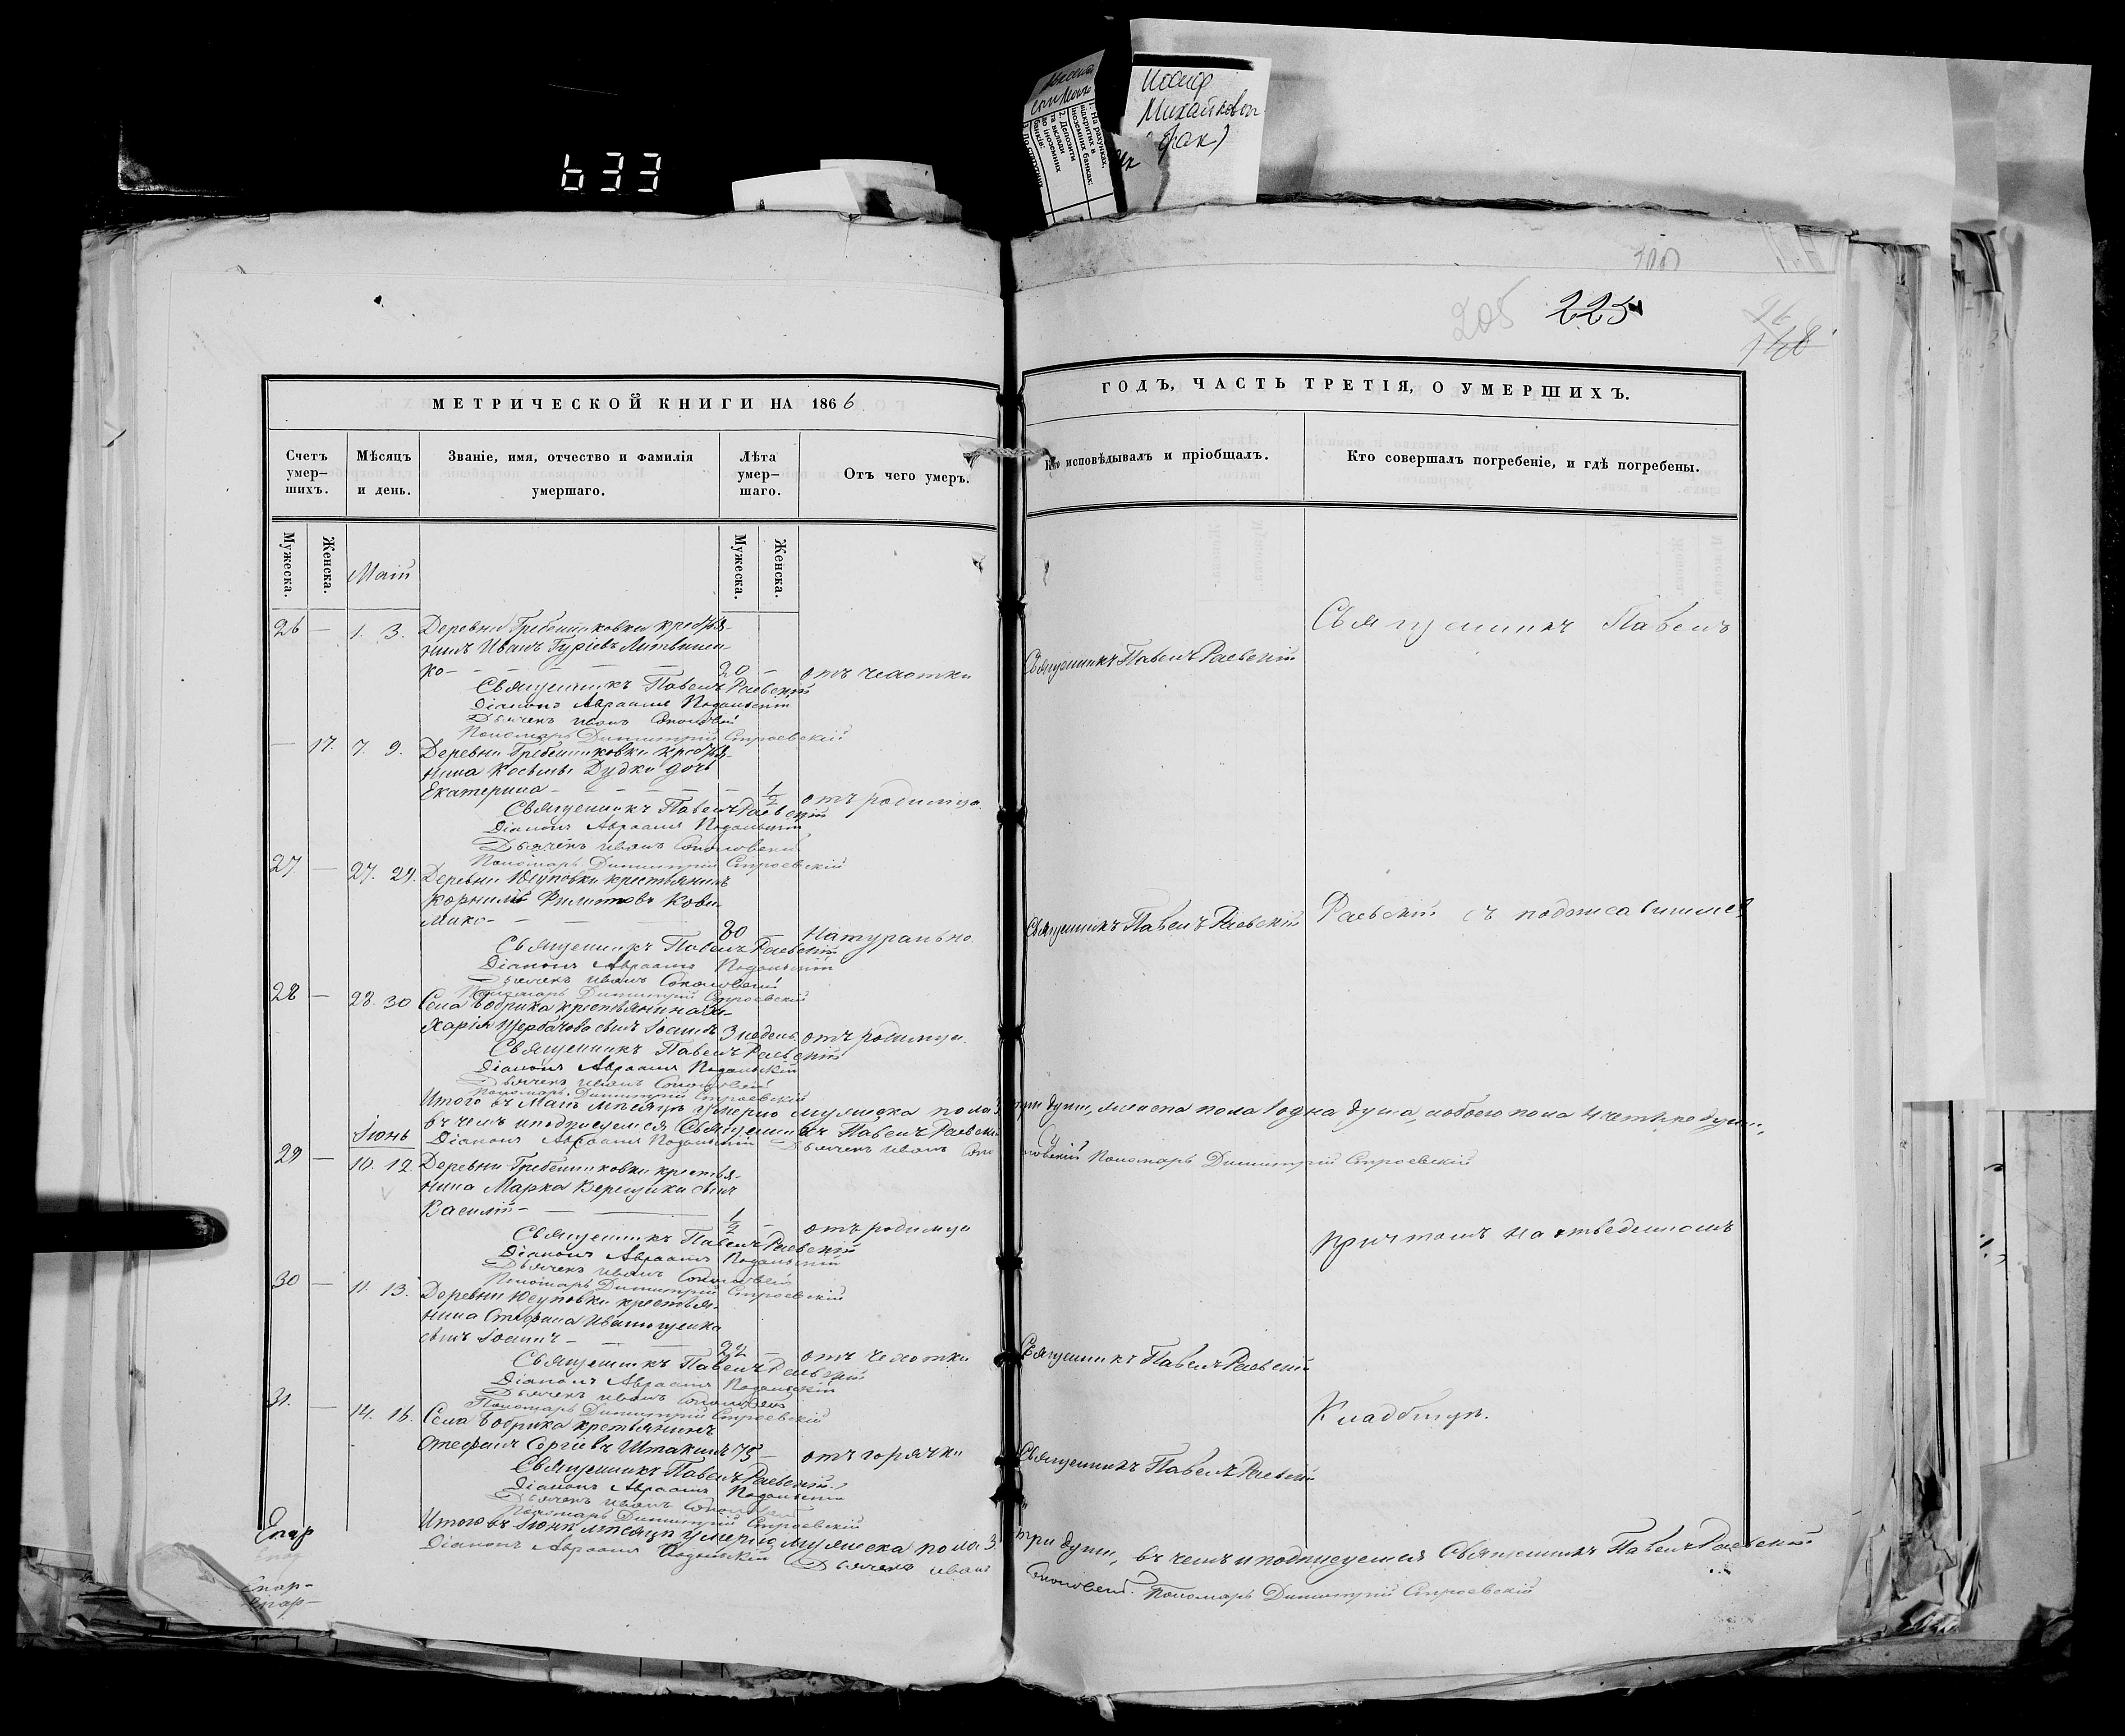 633
Иосиф
Михайлович
1. На рахунках,
відкритих в
іноземних банках:
2. Депозити
та вклади
до іноземних
банків:
205 225
МЕТРИЧЕСКОЙ КНИГИ НА 1866
ГОДЪ, ЧАСТЬ ТРЕТІЯ, О УМЕРШИХЪ.
Счетъ умер-
шихъ.
Мѣсяцъ
и день.
Званіе, имя, отчество и фамилія
умершаго.
Лѣта
умер-
шаго.
Отъ чего умеръ.
Кто исповѣдывалъ и пріобщалъ.
Кто совершалъ погребеніе, и гдѣ погребены.
Мужеска.
Женска.
Май
Мужеска.
Женска.
26 — 1. 3. Деревни Гребенниковки крестья-
нинъ Иванъ Гуріевъ Литвинен-
ко — 20 — отъ чахотки Священникъ Павелъ Раевскій
Священникъ Павелъ
Священникъ Павелъ Раевскій
Діаконъ Авраамъ Подольскій
Дьячекъ Иванъ Соколовскій
Пономарь Димитрій Строевскій
— 17. 7. 9. Деревни Гребенниковки крестья-
нина Косьмы Дудки дочь
Екатерина — — 1/2 отъ родимца.
Священникъ Павелъ Раевскій
Діаконъ Авраамъ Подольскій
Дьячекъ Иванъ Соколовскій
Пономарь Димитрій Строевскій
27 — 27. 29. Деревни Юсуповки крестьянинъ
Корнилій Филиповъ
80 — Натурально. Священникъ Павелъ Раевскій
Раевскій съ подписавшимся
Священникъ Павелъ Раевскій
Діаконъ Авраамъ Подольскій
Дьячекъ Иванъ Соколовскій
Пономарь Димитрій Строевскій
28 — 28. 30 Села Бобрика крестьянина За-
харія Щербакова сынъ Іоаннъ 3 недель отъ родимца.
Священникъ Павелъ Раевскій
Діаконъ Авраамъ Подольскій
Дьячекъ Иванъ Соколовскій
Пономарь Димитрій Строевскій
Итого въ Маѣ мѣсяцѣ умерло мужеска пола 3 три души, женска пола 1 одна душа, обоего пола 4 четыре души,
въ чемъ и подписуемся Священникъ Павелъ Раевскій
Діаконъ Авраамъ Подольскій Дьячекъ Иванъ Соколовскій Пономарь Димитрій Строевскій
Іюнь
29 — 10. 12. Деревни Гребенниковки крестья-
нина Марка Верещаки сынъ
Василій — 1/2 — отъ родимца
Причтомъ на отведенномъ
Священникъ Павелъ Раевскій
Діаконъ Авраамъ Подольскій
Дьячекъ Иванъ Соколовскій
Пономарь Димитрій Строевскій
30 — 11. 13. Деревни Юсуповки крестья-
нина Стефана Иванющенка
сынъ Іоаннъ — 22 — отъ чахотки Священникъ Павелъ Раевскій
Священникъ Павелъ Раевскій
Діаконъ Авраамъ Подольскій
Дьячекъ Иванъ Соколовскій
Пономарь Димитрій Строевскій
Кладбищѣ.
31. — 14. 16. Села Бобрика крестьянинъ
Стефанъ Сергіевъ Штакинъ 75 — отъ горячки Священникъ Павелъ Раевскій
Священникъ Павелъ Раевскій
Діаконъ Авраамъ Подольскій
Дьячекъ Иванъ Соколовскій
Пономарь Димитрій Строевскій
Итого въ Іюнѣ мѣсяцѣ умерло мужеска пола 3. три души, въ чемъ и подписуемся Священникъ Павелъ Раевскій
Діаконъ Авраамъ Подольскій Дьячекъ Иванъ Соколовскій. Пономарь Димитрій Строевскій
Епар
Епар-
Епар-